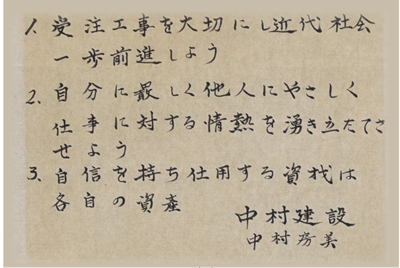 1. 受注工事を大切にし近代社会
一歩前進しよう
2. 自分に厳しく他人にやさしく
仕事に対する情熱を湧き立たてさ
せよう
3. 自信を持ち仕用する資材は
各自の資産
中村建設
中村